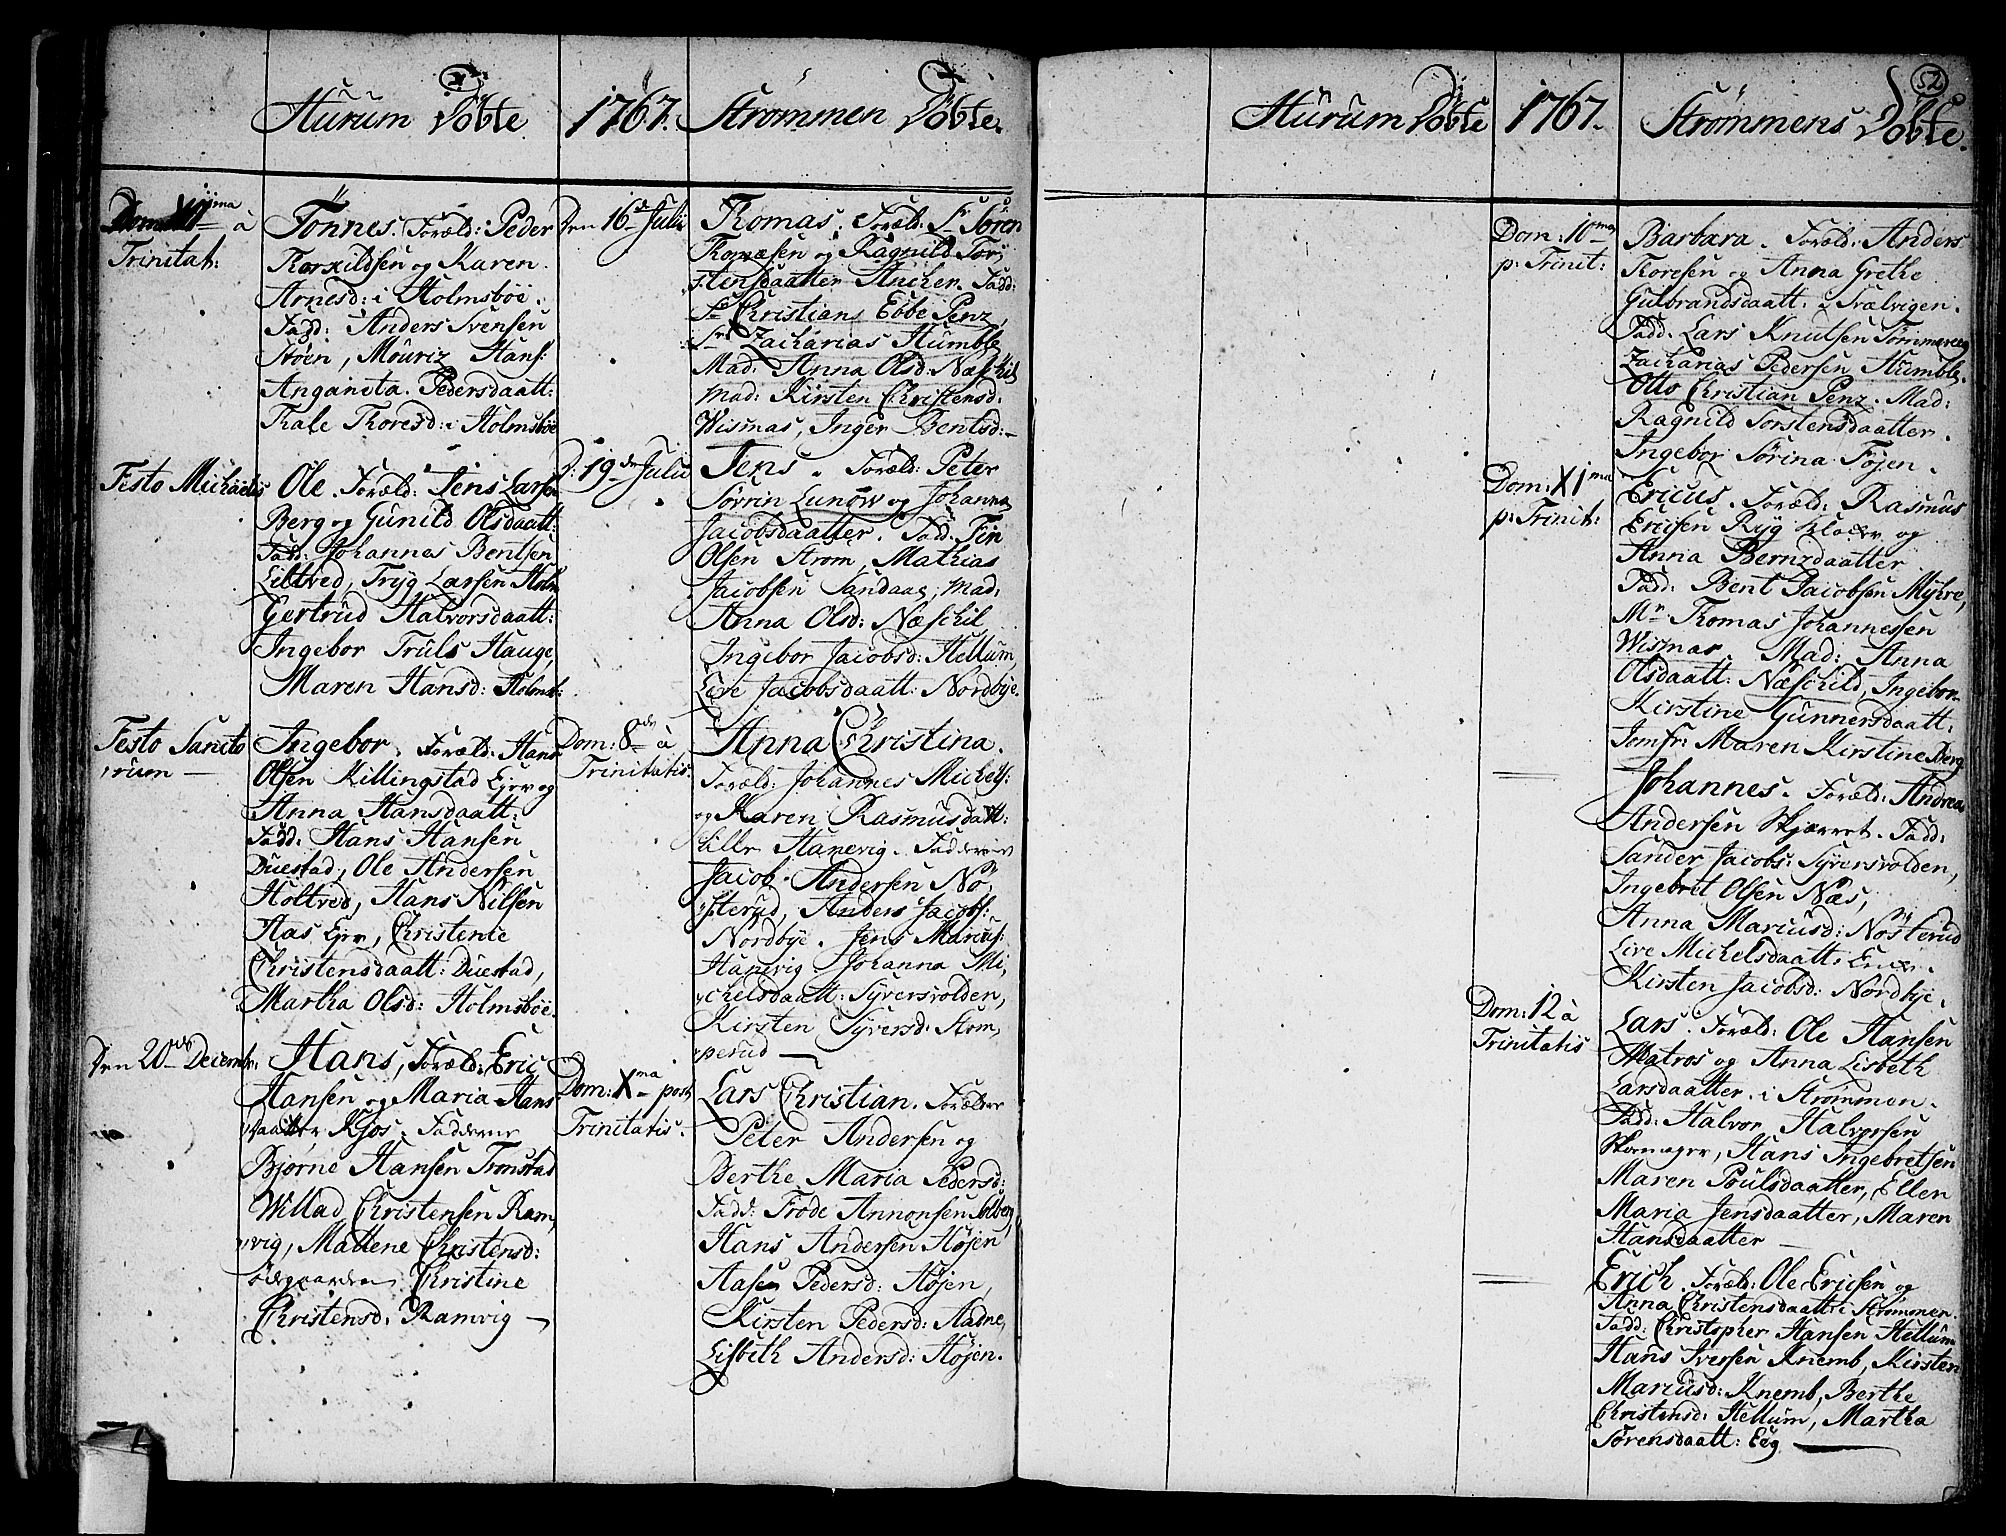 Hurum Döbte
1767.
Strømmen Döbte.
à
Trinitat:
Tönnes. Foræld: Peder
Torkildsen og Karen
Arnesd: i Holmsböe.
Fadd: Anders Svensen
Stöen, Mouriz Hans:
Anganeta Pedersdaatt:
Thale Thoresd: i Holmsböe
Festo Michaelis
Ole. Foræld: Jens Larsen
Berg og Gunild Olsdaatt:
Fadd: Johannes Bentsen
Liltved, Tryg Larsen Holm
Gertrud Halvorsdaatt:
Ingebor Truls Hauge,
Maren Hansd: Holmsb:
Festo Sancto
rum —
Ingebor. Foræld: Hans
Olsen Killingstad Ejer og
Anna Hansdaatt:
Fadd: Hans Hansen
Duestad, Ole Andersen
Holtved, Hans Nilsen
Haas Ejer, Christence
Christensdaatt: Duestad,
Martha Olsd: Holmsböe.
Den 20de Decembr:
Hans, Foræld: Eric
Hansen og Maria Hans
daatter Kjos. Fadderne
Bjørne Hansen Tronstad
Willad Christensen Ram,
vig, Mallene Christensd:
ødegaarden Christine
Christensd: Ramvig —
Den 16de Julii
Thomas. Foræld: Sr Sören
Thomæsen og Ragnild Tor,
stensdaatter Ancher. Fadd:
Sr Christians Ebbe Penz,
Sr Zacharias Humble
Mad: Anna Olsd: Næschil
Mad: Kirsten Christensd:
Wismas, Inger Bentsd: —
D: 19de Julii
Jens. Foræld: Peter
Sövrin Lunow og Johanna
Jacobsdaatter. Fadd: Fin
Olsen Strøm, Mathias
Jacobsen Sandaas, Mad:
Anna Olsd: Næschil
Ingebor Jacobsd: Hellum,
Live Jacobsdaatt: Nordbye.
Dom: 8de à
Trinitatis.
Anna Christina.
Foræld: Johannes Michels:
og Karen Rasmusdatt:
Lille Hanevig. Fadderne
Jacob Andersen Nö,
sterud, Anders Jacobs:
Nordbye. Jens Marius:
Hanevig. Johanna Mi,
chelsdaatt: Syversvolden,
Kirsten Syversd: Stom,
perud —
Dom: Xma post
Trinitatis.
Lars Christian. Forældre
Peter Andersen og
Berthe Maria Pedersd:
Fadd: Frode Annonsen Solberg
Hans Andersen Höjen
Aase Pedersd: Höjen,
Kirsten Pedersd: Aadne,
Lisbeth Andersd: Höjen.
52
Hurum Döbte
1767.
Strømmens Döbte.
Dom: 10ma
p: Trinit:
Barbara. Foræld: Anders
Thoresen og Anna Grethe
Gulbrandsdaatt: i Svælvigen.
Fadd. Lars Knutsen Tømmeraas
Zacharias Pedersen Humble.
Otto Christian Penz. Mad:
Ragnild Torstensdaatter.
Ingebor Sörina Föjen.
Dom: XIma
p: Trinit:
Ericus. Foræld: Rasmus
Ericsen Ryg Kloder og
Anna Bernzdaatter
Fadd: Bent Jacobsen Myhre,
Mr Thomas Johannessen
Wismar. Mad: Anna
Olsdaatt: Næschild, Ingebor
Kirstine Gunnersdaatt:
Jomfr: Maren Kirstine Berg
Johannes. Foræld: Andreas
Andersen Skjærret. Fadd:
Sander Jacobs: Syversvolden,
Ingebret Olsen Næs,
Anna Mariusd: Nösterud
Live Michelsdaatt:
Kirsten Jacobsd: Nordbye.
Dom: 12 à
Trinitatis
Lars. Foræld: Ole Hansen
Matros og Anna Lisbeth
Larsdaatter. i Strømmen.
Fadd: Halvor Halversen
Skomager, Hans Ingebretsen
Maren Poulsdaatter, Ellen
Maria Jensdaatter, Maren
Hansdaatter —
Erich. Foræld: Ole Ericsen og
Anna Christensdaatt: i Strømmen.
Fadd: Christopher Hansen Hellum
Hans Iversen Knemb, Kirsten
Mariusd: Knemb, Berthe
Christensd: Hellum, Martha
Sörensdaatt: Eeg